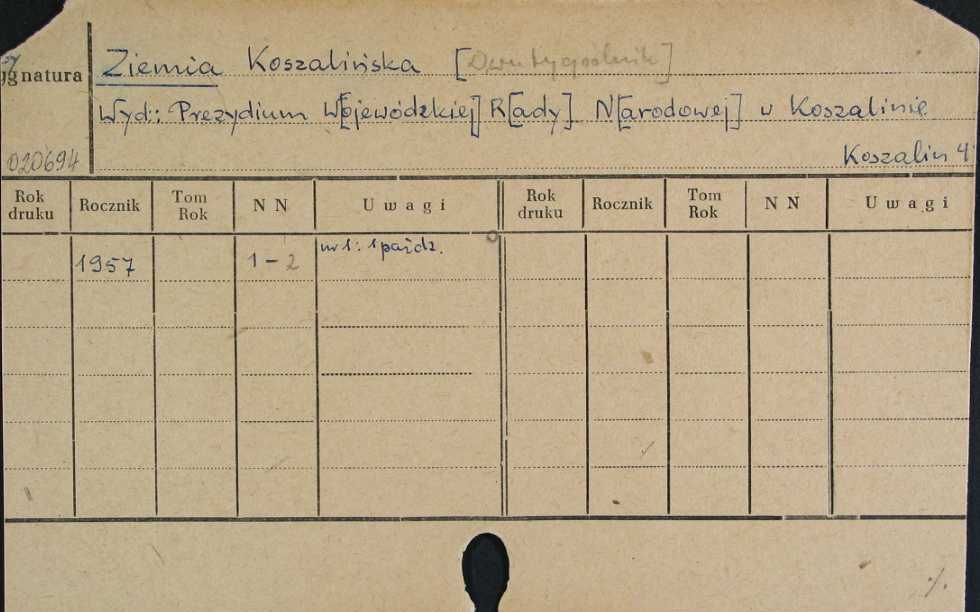 Ziemia Koszalińska [Dwutygodnik]
Sygnatura
Wyd.: Prezydium W[ojewódzkiej] R[ady] N[arodowej] w Koszalinie
020694
Koszalin 4
Rok druku Rocznik Tom Rok N N Uwagi Rok druku Rocznik Tom Rok N N Uwagi
1957 1-2 nr 1: 1 paźdz.
%.